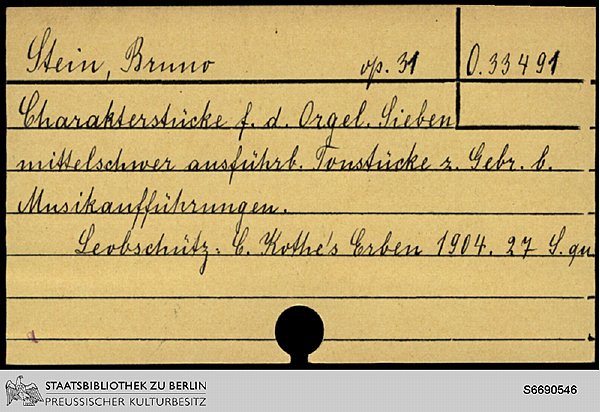 Stein, Bruno op. 31 O.33491
Charakterstücke f. d. Orgel. Sieben
mittelschwer ausführb. Tonstücke z. Gebr. b.
Musikaufführungen.
Leobschütz: C. Kothe's Erben 1904. 27 S. qu
STAATSBIBLIOTHEK ZU BERLIN
PREUSSISCHER KULTURBESITZ
S6690546